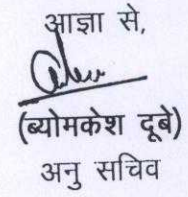 आज्ञा से,
(ब्योमकेश दूबे)
अनु सचिव